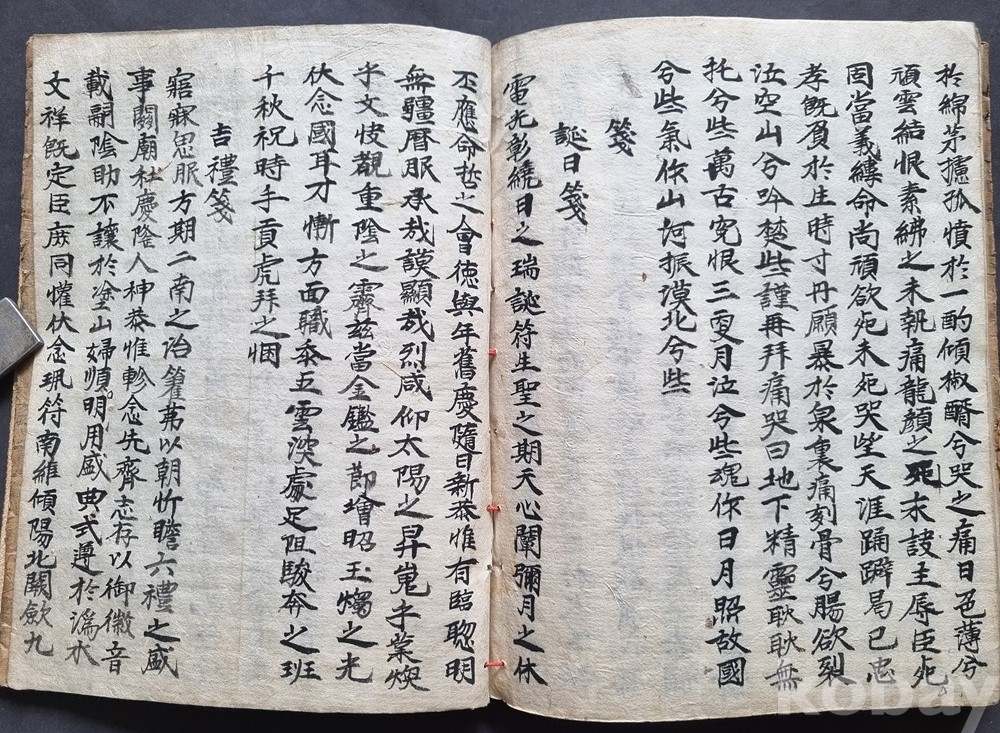 於綿茅攄孤憤於一酌傾椒醑兮哭之痛日色薄兮
頑雲結恨素紼之未執痛龍顔之死未諼主辱臣死
固當義縳命尚頑欲死未死哭望天涯踊躃曷已忠
孝旣負於生時寸丹願暴於泉裏痛刻骨兮腸欲裂
泣空山兮吟楚些謹再拜痛哭曰地下精靈耿耿無
托兮些萬古寃恨三更月泣兮些魂作日月照故國
兮些氣作山河振漠北兮些
箋
誕日箋
電光彰繞日之瑞誕符生聖之期天心闡彌月之休
丕應命哲之會德與年舊慶隨日新恭惟有臨聦明
無疆曆服承哉謨顯哉烈咸仰太陽之昇嵬乎業煥
乎文忮觀重陰之霽玆當金鑑之節增昭玉燭之光
伏念國耳才慚方面職忝五雲深處足阻駿奔之班
千秋祝時手貢虎拜之悃
吉禮箋
寤寐思服方期二南之治籊茀以朝忻瞻六禮之盛
事關廟社慶隆人神恭惟軫念先齊志存以御徽音
載嗣陰助不讓於塗山婦順明用盛典式遵於溈水
文祥旣定臣庶同懽伏念珮符南維傾陽北闕歛九
kobay